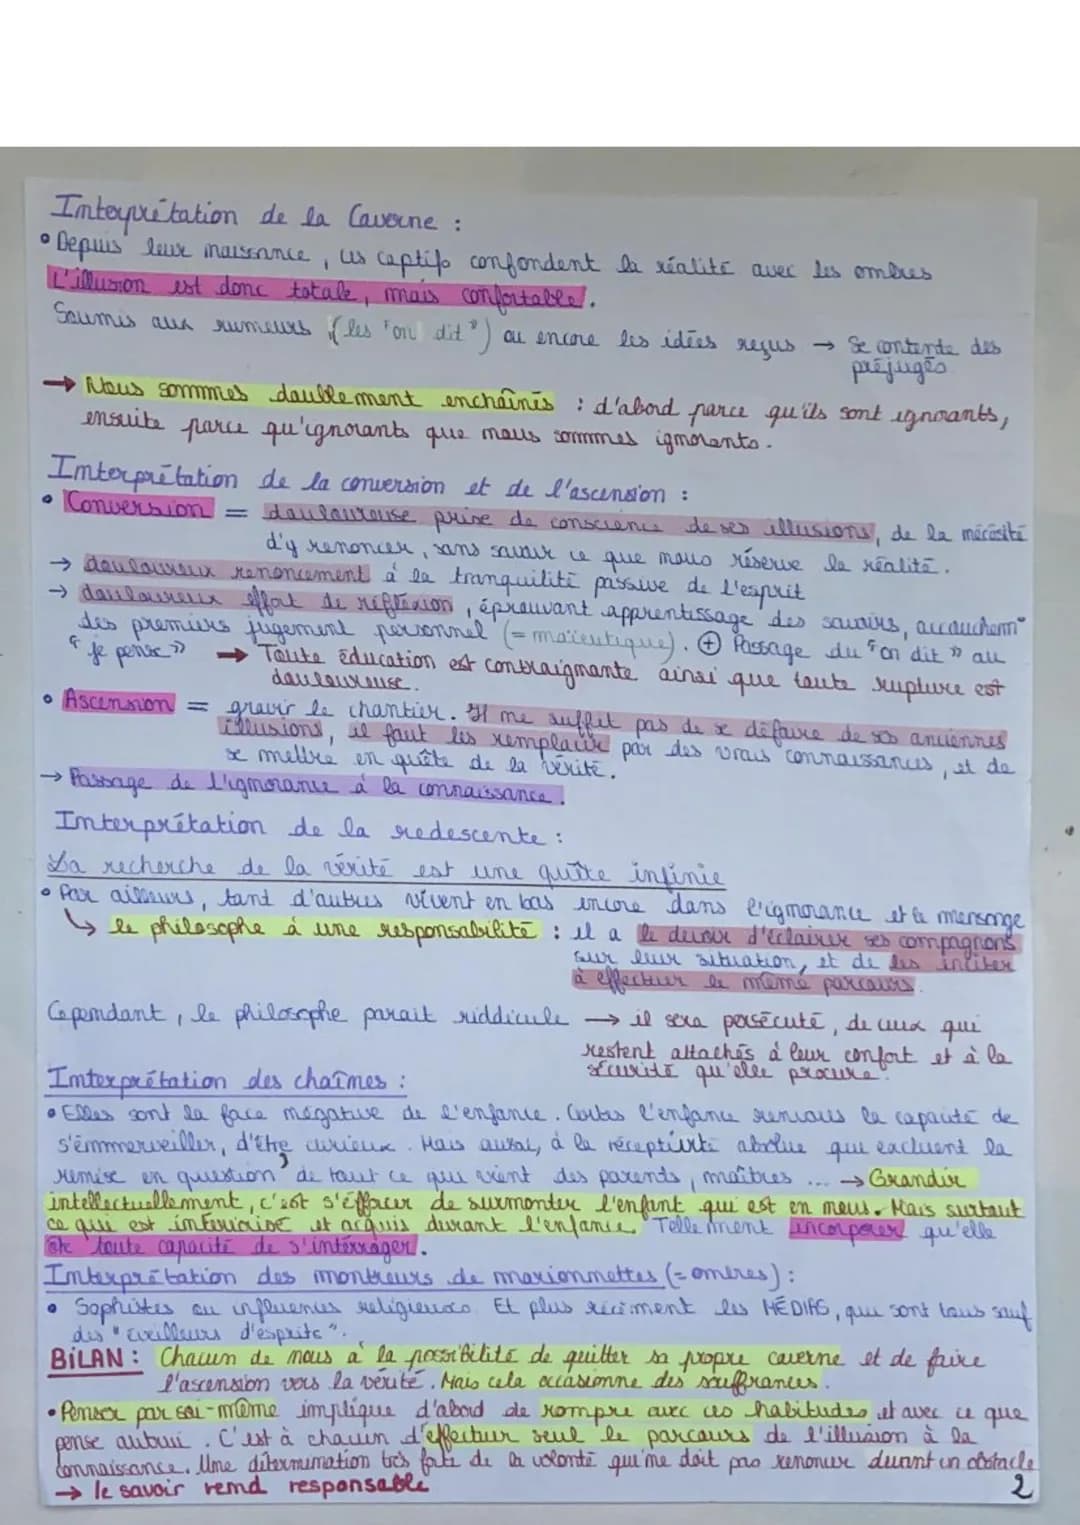 Interprétation de la Caverne :
• Depuis leur naissance, ces captifs confondent la réalité avec les ombres
L'illusion est donc totale, mais confortable.
Soumis aux rumeurs (les "on dit") ou encore les idées reçus → Se contente des
préjugés
→ Nous sommes doublement enchaînés : d'abord parce qu'ils sont ignorants,
ensuite parce qu'ignorants que nous sommes ignorants.
Interprétation de la conversion et de l'ascension :
• Conversion = douloureuse prise de conscience de ses illusions, de la nécésité
d'y renoncer, sans savoir ce que nous réserve la réalité.
→ douloureux renoncement à la tranquilité passive de l'esprit
→ douloureux effort de réflexion, éprouvant apprentissage des savoirs, accouchemt
des premiers jugement personnel (= maïeutique). ⊕ Passage du "on dit" au
"je pense" → Toute éducation est contraignante ainsi que toute rupture est
douloureuse.
• Ascension = gravir le chantier. Il ne suffit pas de se défaire de ses anciennes
illusions, il faut les remplacer par des vrais connaissances, et de
se mettre en quête de la vérité.
→ Passage de l'ignorance à la connaissance.
Interprétation de la redescente :
La recherche de la vérité est une quête infinie
• Par ailleurs, tant d'autres vivent en bas encore dans l'ignorance et le mensonge
↳ le philosophe à une responsabilité : il a le devoir d'éclairer ses compagnons
sur leur situation, et de les inciter
à effectuer le même parcours.
Cependant, le philosophe parait riddicule → il sera persécuté, de ceux qui
restent attachés à leur confort et à la
sécurité qu'elle procure.
Interprétation des chaînes :
• Elles sont la face négative de l'enfance. Certes l'enfance renvois la capacité de
s'émmerveiller, d'être curieux. Mais aussi, à la réceptivité absolue qui excluent la
remise en question de tout ce qui vient des parents, maîtres ... → Grandir
intellectuellement, c'est s'éfforcer de surmonter l'enfant qui est en nous. Mais surtout
ce qui est intériorisé et acquis durant l'enfance. Telle ment incorporer qu'elle
ôte toute capacité de s'intérroger.
Interprétation des montreurs de marionnettes (= ombres) :
• Sophistes ou influences religieuses. Et plus récément les MÉDIAS, qui sont tous sauf
des "éveilleurs d'esprits".
BiLAN : Chacun de nous a la possibilité de quitter sa propre caverne et de faire
l'ascension vers la vérité. Mais cela occasionne des souffrances.
• Penser par soi-même implique d'abord de rompre avec ces habitudes, et avec ce que
pense autrui. C'est à chacun d'effectuer seul le parcours de l'illusion à la
connaissance. Une détermination très forte de la volonté qui ne doit pas renoncer durant un obstacle
→ le savoir rend responsable
2